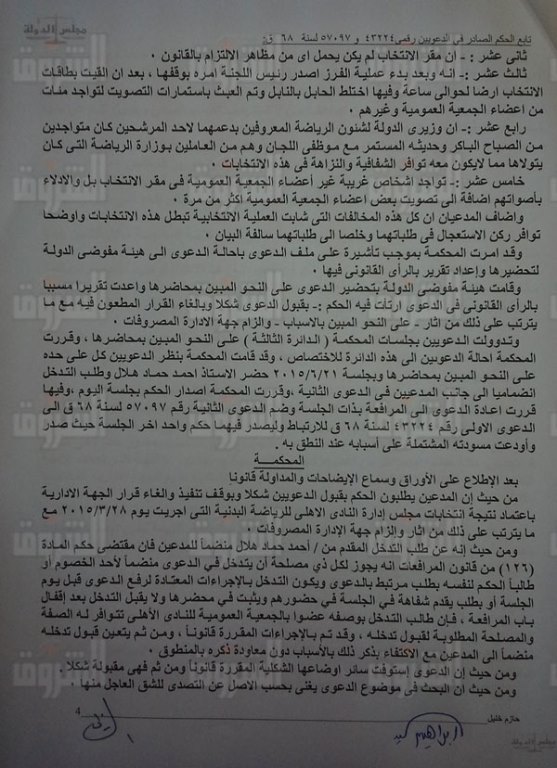 مجلس الدولة
تابع الحكم الصادر فى الدعويين رقمى ٤٣٢٢٤ و ٥٧٠٩٧ لسنة ٦٨ ق:
ثانى عشر :- ان مقر الانتخاب لم يكن يحمل اى من مظاهر الالتزام بالقانون .
ثالث عشر :- انه وبعد بدء عملية الفرز اصدر رئيس اللجنة امره بوقفها , بعد ان القيت بطاقات
الانتخاب ارضا لحوالى ساعة وفيها اختلط الحابل بالنابل وتم العبث باستمارات التصويت لتواجد مئات
من اعضاء الجمعية العمومية وغيرهم .
رابع عشر :- ان وزيرى الدولة لشئون الرياضة المعروفين بدعمهما لاحد المرشحين كان متواجدين
من الصباح الباكر وحديثه المستمر مع موظفى اللجان وهم من العاملين بوزارة الرياضة التى كان
يتولاها مما لايكون معه توافر الشفافية والنزاهة فى هذه الانتخابات .
خامس عشر :- تواجد اشخاص غريبة غير أعضاء الجمعية العمومية فى مقر الانتخاب بل والادلاء
بأصواتهم اضافة الى تصويت بعض اعضاء الجمعية العمومية اكثر من مرة .
واضاف المدعيان ان كل هذه المخالفات التى شابت العملية الانتخابية تبطل هذه الانتخابات واوضحا
توافر ركن الاستعجال فى طلباتهما وخلصا الى طلباتهما سالفة البيان .
وقد امرت المحكمة بموجب تأشيرة على ملف الدعوى باحالة الدعوى الى هيئة مفوضى الدولة
لتحضيرها وإعداد تقرير بالرأى القانونى فيها .
وقامت هيئة مفوضى الدولة بتحضير الدعوى على النحو المبين بمحاضرها واعدت تقريرا مسببا
بالرأى القانونى فى الدعوى ارتأت فيه الحكم :- بقبول الدعوى شكلا وبالغاء القرار المطعون فيه مع ما
يترتب على ذلك من اثار - على النحو المبين بالاسباب - والزام جهة الادارة المصروفات .
وتدوولت الدعوى بجلسات المحكمة ( الدائرة الثالثة ) على النحو المبين بمحاضرها , وقررت
المحكمة احالة الدعويين الى هذه الدائرة للاختصاص , وقد قامت المحكمة بنظر الدعويين كل على حده
على النحو المبين بمحاضرها وبجلسة ٢٠١٥/٦/٢١ حضر الاستاذ احمد حماد هلال وطلب التدخل
انضماميا الى جانب المدعيين فى الدعوى الثانية ,وقررت المحكمة اصدار الحكم بجلسة اليوم ,وفيها
قررت اعادة الدعوى الى المرافعة بذات الجلسة وضم الدعوى الثانية رقم ٥٧٠٩٧ لسنة ٦٨ ق الى
الدعوى الاولى رقم ٤٣٢٢٤ لسنة ٦٨ ق للارتباط وليصدر فيهما حكم واحد اخر الجلسة حيث صدر
وأودعت مسودته المشتملة على أسبابه عند النطق به .
المحكمــة
بعد الإطلاع على الأوراق وسماع الإيضاحات والمداولة قانونا
من حيث إن المدعين يطلبون الحكم بقبول الدعويين شكلا وبوقف تنفيذ والغاء قرار الجهة الادارية
باعتماد نتيجة انتخابات مجلس إدارة النادى الاهلى للرياضة البدنية التى اجريت يوم ٢٠١٥/٣/٢٨ مع
ما يترتب على ذلك من اثار وإلزام جهة الإدارة المصروفات .
ومن حيث إنه عن طلب التدخل المقدم من / أحمد حماد هلال منضماً للمدعين فان مقتضى حكم المادة
(١٢٦) من قانون المرافعات انه يجوز لكل ذي مصلحة أن يتدخل في الدعوى منضماً لأحد الخصوم أو
طالباً الحكم لنفسه بطلب مرتبط بالدعوى ويكون التدخل بالإجراءات المعتادة لرفع الدعوى قبل يوم
الجلسة أو بطلب يقدم شفاهة في الجلسة في حضورهم ويثبت في محضرها ولا يقبل التدخل بعد إقفال
باب المرافعة , فان طالب التدخل بوصفه عضوا بالجمعية العمومية للنادى الأهلى تتوافر له الصفة
والمصلحة المطلوبة لقبول تدخله , وقد تم بالإجراءات المقررة قانوناً , ومن ثم يتعين قبول تدخله
منضماً الى المدعين مع الاكتفاء بذكر ذلك بالأسباب دون معاودة ذكره بالمنطوق .
ومن حيث إن الدعوى إستوفت سائر اوضاعها الشكلية المقررة قانوناً ومن ثم فهى مقبولة شكلا .
ومن حيث ان البحث فى موضوع الدعوى يغنى بحسب الاصل عن التصدى للشق العاجل منها .
حازم خليل
4